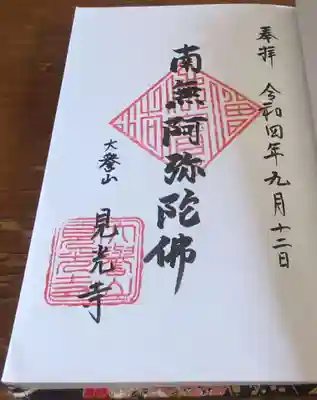 奉拝 令和四年九月十二日
南無阿弥陀佛
大誉山
見光寺